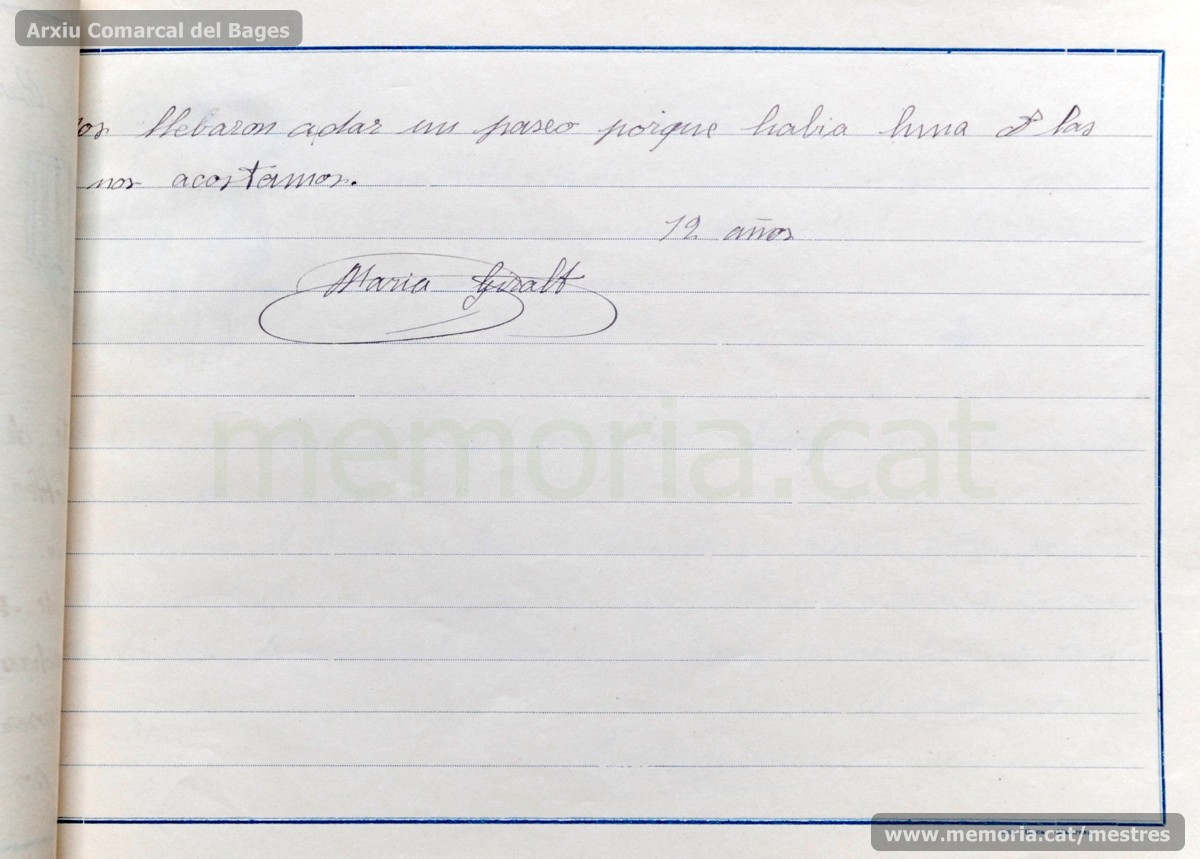 Arxiu Comarcal del Bages
nos llebaron adar un paseo porque habia luna a las
nos acostamos.
12 años
Maria Giralt
memoria.cat
www.memoria.cat/mestres